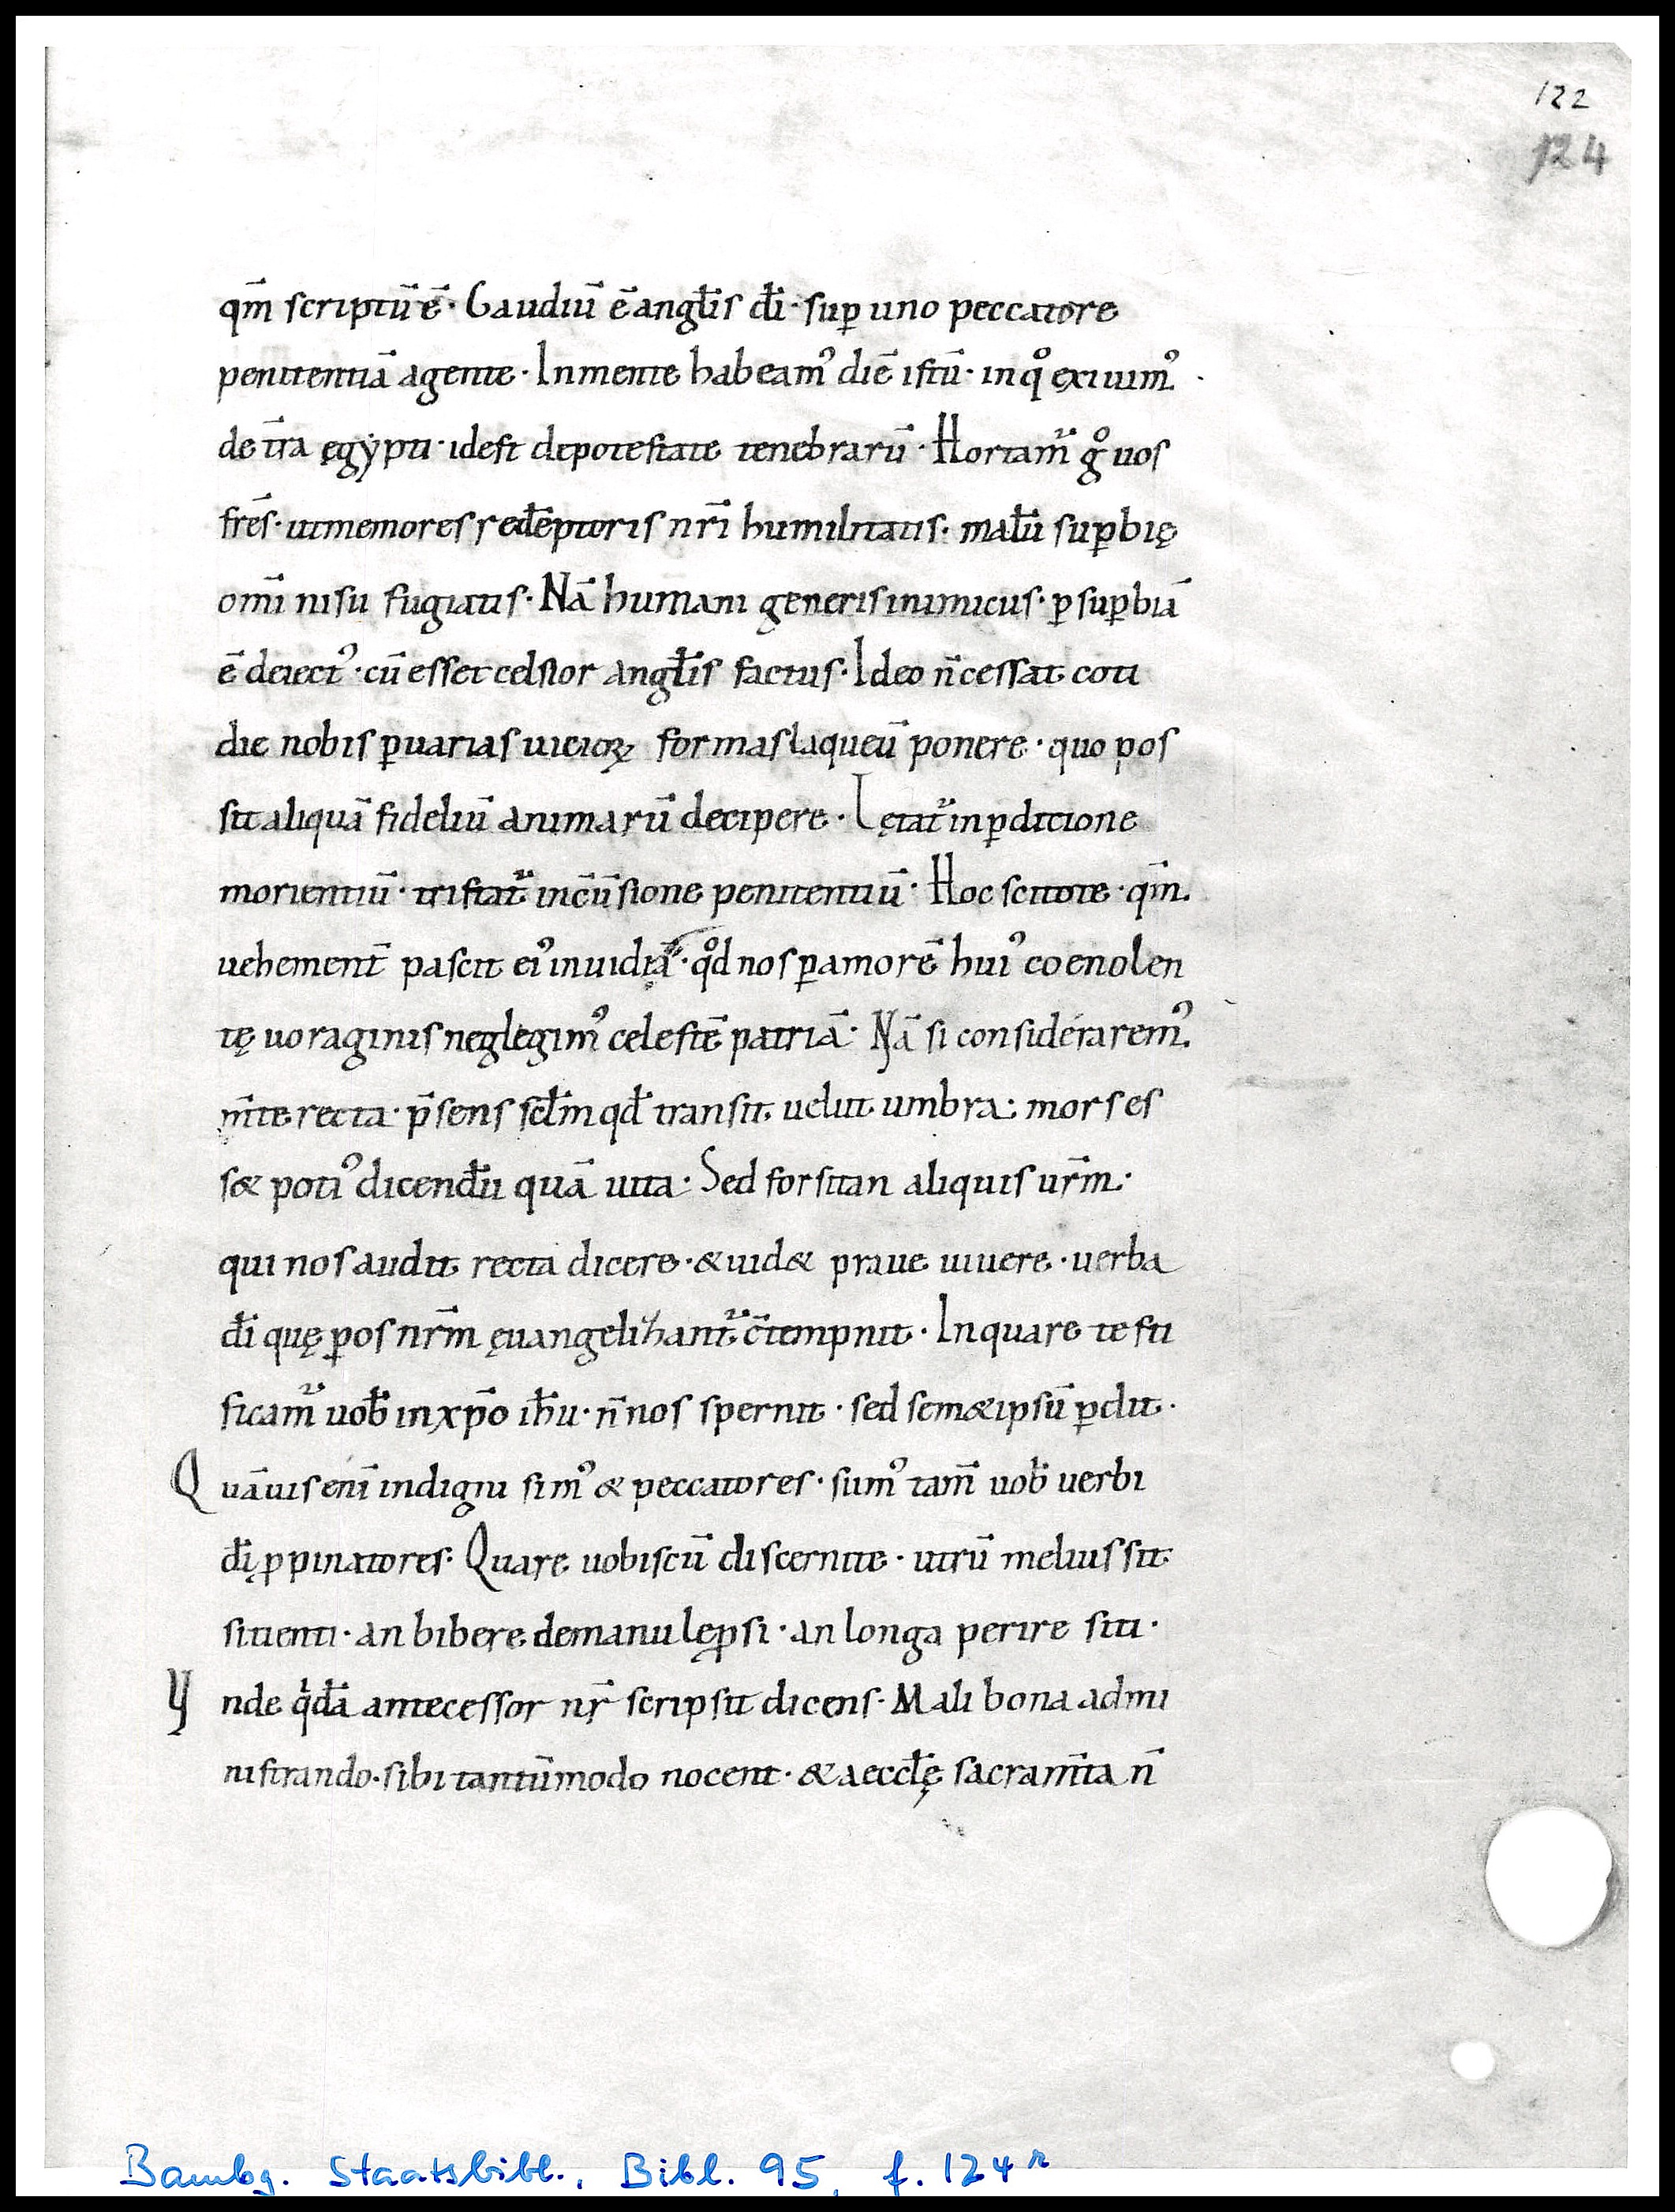 122
124
qm̄ scriptū ē· Gaudiū ē angƚis dī· suꝑ uno peccatore
penitentiā agente· In mente habeam᾽ diē istū· in qͦ exiuim᾽·
de t̄ra ęgẏpti· idest depotestate tenebrarū· Hortam̃ gͦ uos
fr̄es· utmemores redēptoris nr̄i humilitatis· malū suꝑbię
om̄i nisu fugiatis· Nā humani generis inimicus· ꝑ suꝑbiā
ē deiect᾽· cū esset celsior angƚis factus· Ideo n̄ cessat coti
die nobis ꝑuarias uicioꝝ formas laqueū ponere· quo pos
sit aliquā fideliū animarū decipere· Lętat̃ inꝑdicione
morientiū· tristat̃ inc̄uersione penitentiū· Hoc scitote· qm̄·
uehement̄ pascit ei᾽ inuidiā· qͦd nos ꝑamorē hui᾽ coenolen
tę uoraginis neglegim᾽ celestē patriā· Nā si considerarem᾽·
m̄te recta· p̄sens scƚm qđ transit uelut umbra: mors es
s& poti᾽ dicendū quā uita· Sed forsitan aliquis ur̄m·
qui nos audit recta dicere· & uid& praue uiuere· uerba
dī quę ꝑ os nr̄m ęuangelizant̃ c̄tempnit· In quare testi
ficam̃ uob̄ inxp̄o ih̄u· n̄ nos spernit· sed sem&ipsū ꝑdit·
Quāuis enī indigni sim᾽ & peccatores· sum᾽ tam̄ uob̄ uerbi
dī ꝓpinatores· Quare uobiscū discernite· utrū melius sit
sitienti· an bibere demanu leꝓsi· an longa perire siti·
Vnde q̇dā antecessor nr̄ scripsit dicens· Mali bona admi
nistrando· sibi tantūmodo nocent· & aeccƚę sacram̄ta n̄
Bambg. Staatsbibl., Bibl. 95, f. 124r